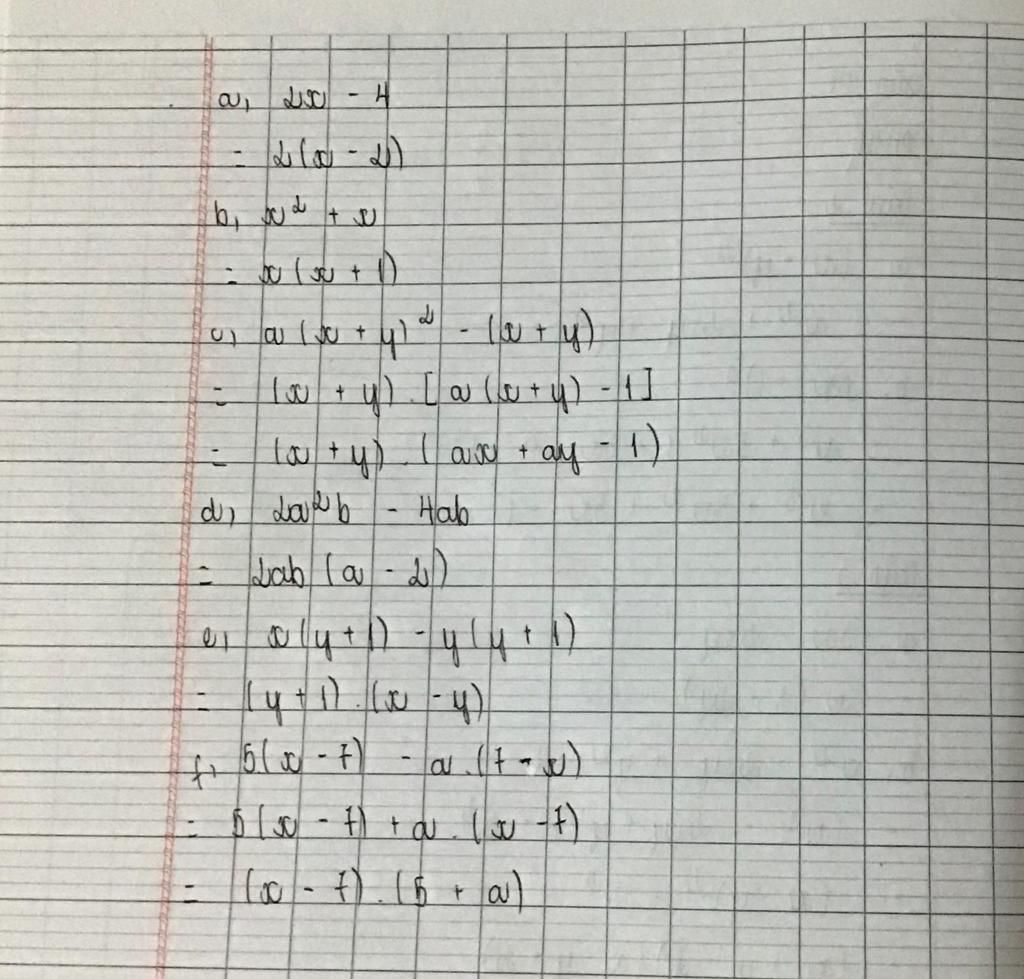 a, 2x - 4
= 2(x - 2)
b, x² + x
= x(x + 1)
c, a(x + y)² - (x + y)
= (x + y).[a(x+y) - 1]
= (x + y).(ax + ay - 1)
d, 2a²b - 4ab
= 2ab(a - 2)
e, x(y+1) - y(y + 1)
= (y + 1).(x - y)
f, 5(x - 7) - a.(7 - x)
= 5(x - 7) + a.(x - 7)
= (x - 7).(5 + a)